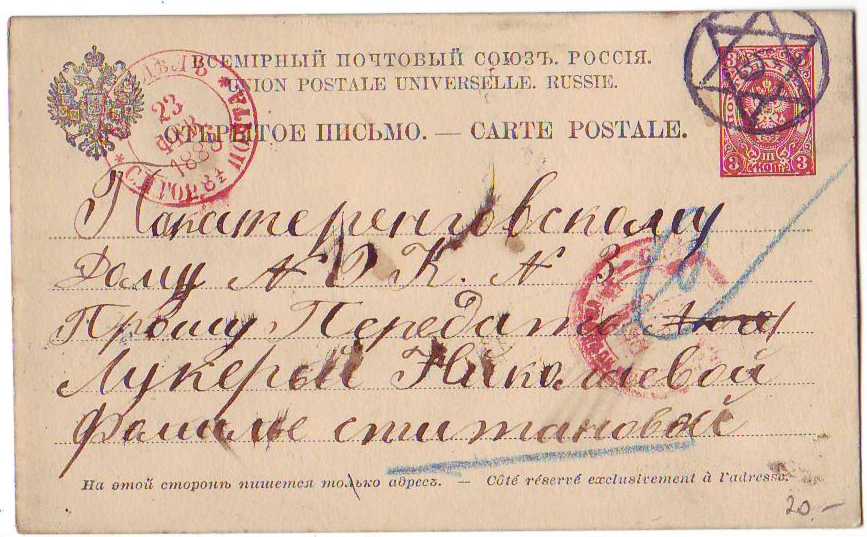 ВСЕМІРНЫЙ ПОЧТОВЫЙ СОЮЗЪ. РОССІЯ.
UNION POSTALE UNIVERSELLE. RUSSIE.
ОТКРЫТОЕ ПИСЬМО. — CARTE POSTALE.
23
ФЕВ.
188
ПОЧТА
С.П.ГОР.
3 3
3 III 3
КОП.
Покатеренговскому
Дому N К. N 3
Прошу Передать
Лукерьи Николаевой
Фамилье ститановой
На этой сторонѣ пишется только адресъ. — Côté réservé exclusivement à l'adresse.
20.-